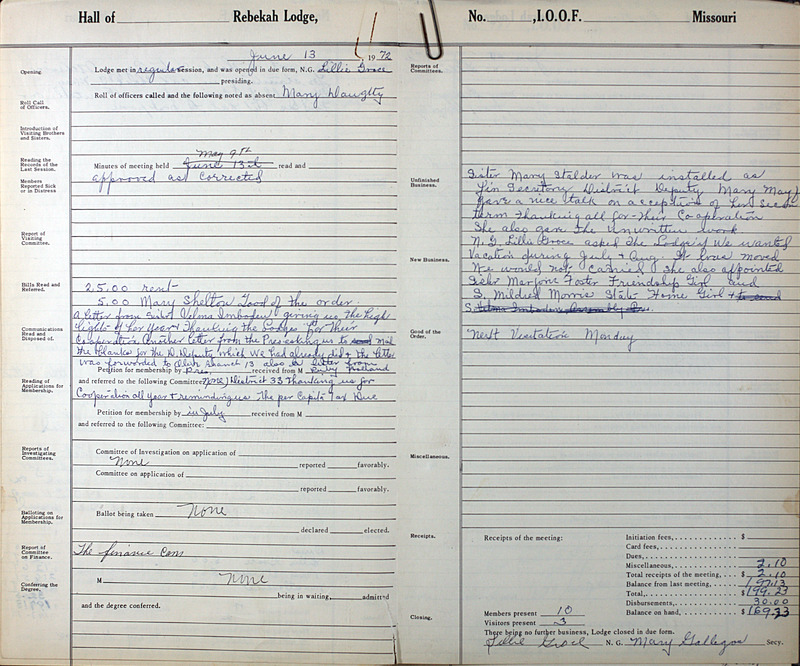 Hall of ______ Rebekah Lodge,
June 13, 1972
Opening.
Lodge met in regular session, and was opened in due form, N.G. Lillie Groce
presiding.
Roll Call of Officers.
Roll of officers called and the following noted as absent Mary Daugtty
Introduction of Visiting Brothers and Sisters.
Reading the Records of the Last Session.
May 9th
Minutes of meeting held June 13th read and
approved as corrected
Members Reported Sick or in Distress
Report of Visiting Committee.
Bills Read and Referred.
25.00 rent
5.00 Mary Shelton Good of the order.
Communications Read and Disposed of.
A letter from Sister Velma Imboden giving us the high
lights of her year & Thanking the Lodge for Their
Cooperation Another letter from the Pres asking us to send mail
the blanks for the D. Deputy which we had already did & the letter
was forwarded to 13 also a letter from
Petition for membership by Pres, received from M Ruby
Reading of Applications for Membership.
and referred to the following Committee: None) District 33 Thanking us for
Cooperation all year & reminding us the per Capita Tax Due
Petition for membership by in July received from M
and referred to the following Committee:
Reports of Investigating Committees.
Committee of Investigation on application of
None reported favorably.
Committee on application of
reported favorably.
Balloting on Applications for Membership.
Ballot being taken None
declared elected.
Report of Committee on Finance.
The finance Com
Conferring the Degree,
M None
being in waiting, admitted
and the degree conferred.
No. ______, I.O.O.F. ______ Missouri
Reports of Committees.
Unfinished Business.
Sister Mary Stalder was installed as
Fin Secretary District Deputy Mary May
gave a nice talk on acception of her secon
term Thanking all for Their Cooperation
She also gave The Unwritten work
New Business.
N. G. Lillie Groce asked The Lodge if we wanted
Vacation during July & Aug. It was moved
We would not Carried She also appointed
Sister Marjorie Foster Friendship Girl and
S. Mildred Morris State Home Girl & to send
S Velma Imboden
Good of the Order.
Next Visitation Monday
Miscellaneous.
Receipts.
Receipts of the meeting:
Initiation fees, $
Card fees,
Dues,
Miscellaneous, 2.10
Total receipts of the meeting, $ 2.10
Balance from last meeting, 197.13
Total, $ 199.23
Disbursements, 30.00
Balance on hand, $ 169.23
Closing.
Members present 10
Visitors present 3
There being no further business, Lodge closed in due form.
Lillie Groce N. G. Mary Gallegos Secy.